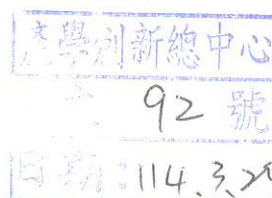 產學創新總中心
文 92 號
日期：114.3.2